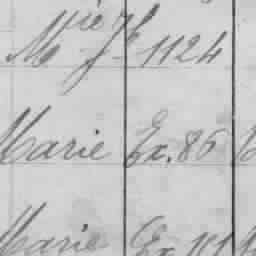 Mie J. 1124
Marie Ex. 86
Marie Ex. 101